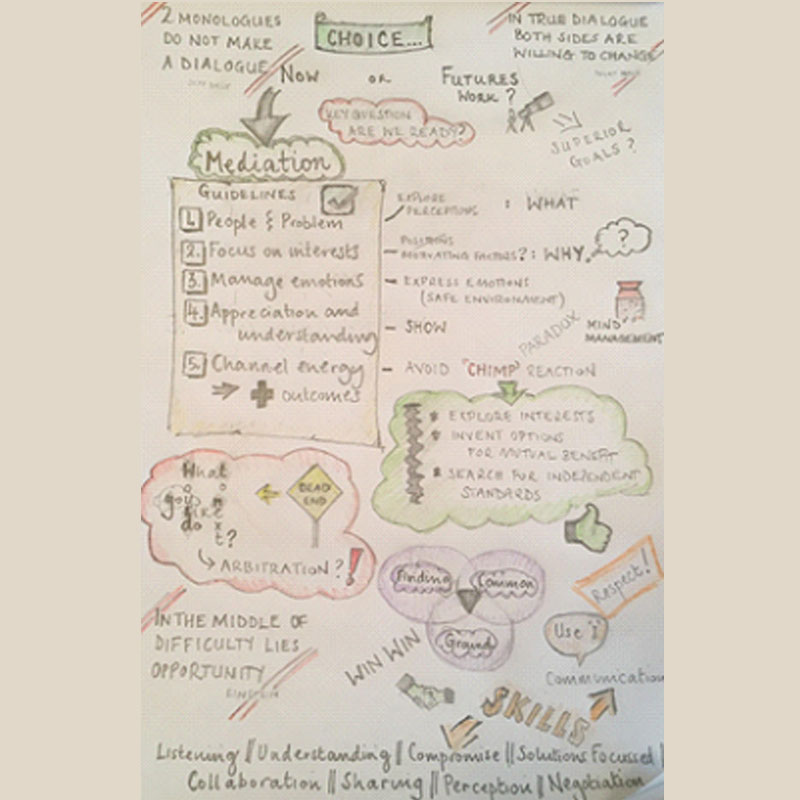 2 MONOLOGUES
DO NOT MAKE
A DIALOGUE
CHOICE...
IN TRUE DIALOGUE
BOTH SIDES ARE
WILLING TO CHANGE
NOW OR FUTURES
WORK?
KEY QUESTION
ARE WE READY?
SUPERIOR
GOALS?
Mediation
GUIDELINES
1. People & Problem
2. Focus on interests
3. Manage emotions
4. Appreciation and
understanding
5. Channel energy
outcomes
EXPLORE
PERCEPTIONS : WHAT
POSITIONS
MOTIVATING FACTORS? : WHY.
?
EXPRESS EMOTIONS
(SAFE ENVIRONMENT)
SHOW
PARADOX
MIND
MANAGEMENT
AVOID "CHIMP" REACTION
EXPLORE INTERESTS
INVENT OPTIONS
FOR MUTUAL BENEFIT
SEARCH FOR INDEPENDENT
STANDARDS
What
do
t?
DEAD
END
ARBITRATION?!
Finding
Common
Ground
WIN WIN
Respect!
Use 'I'
Communication
IN THE MIDDLE OF
DIFFICULTY LIES
OPPORTUNITY
EINSTEIN
SKILLS
Listening || Understanding || Compromise || Solutions Focussed |
Collaboration || Sharing || Perception || Negotiation